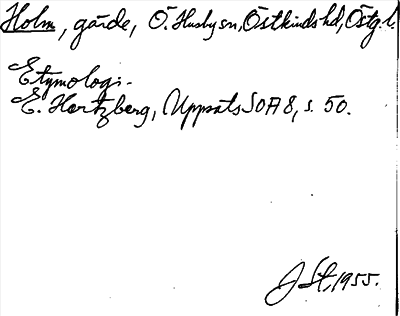 Holm, gärde, Ö. Husby sn, Östkinds hd, Östg. l.
Etymologi.
E. Hertzberg, Uppsats SOÄ 8, s. 50.
J St, 1955.